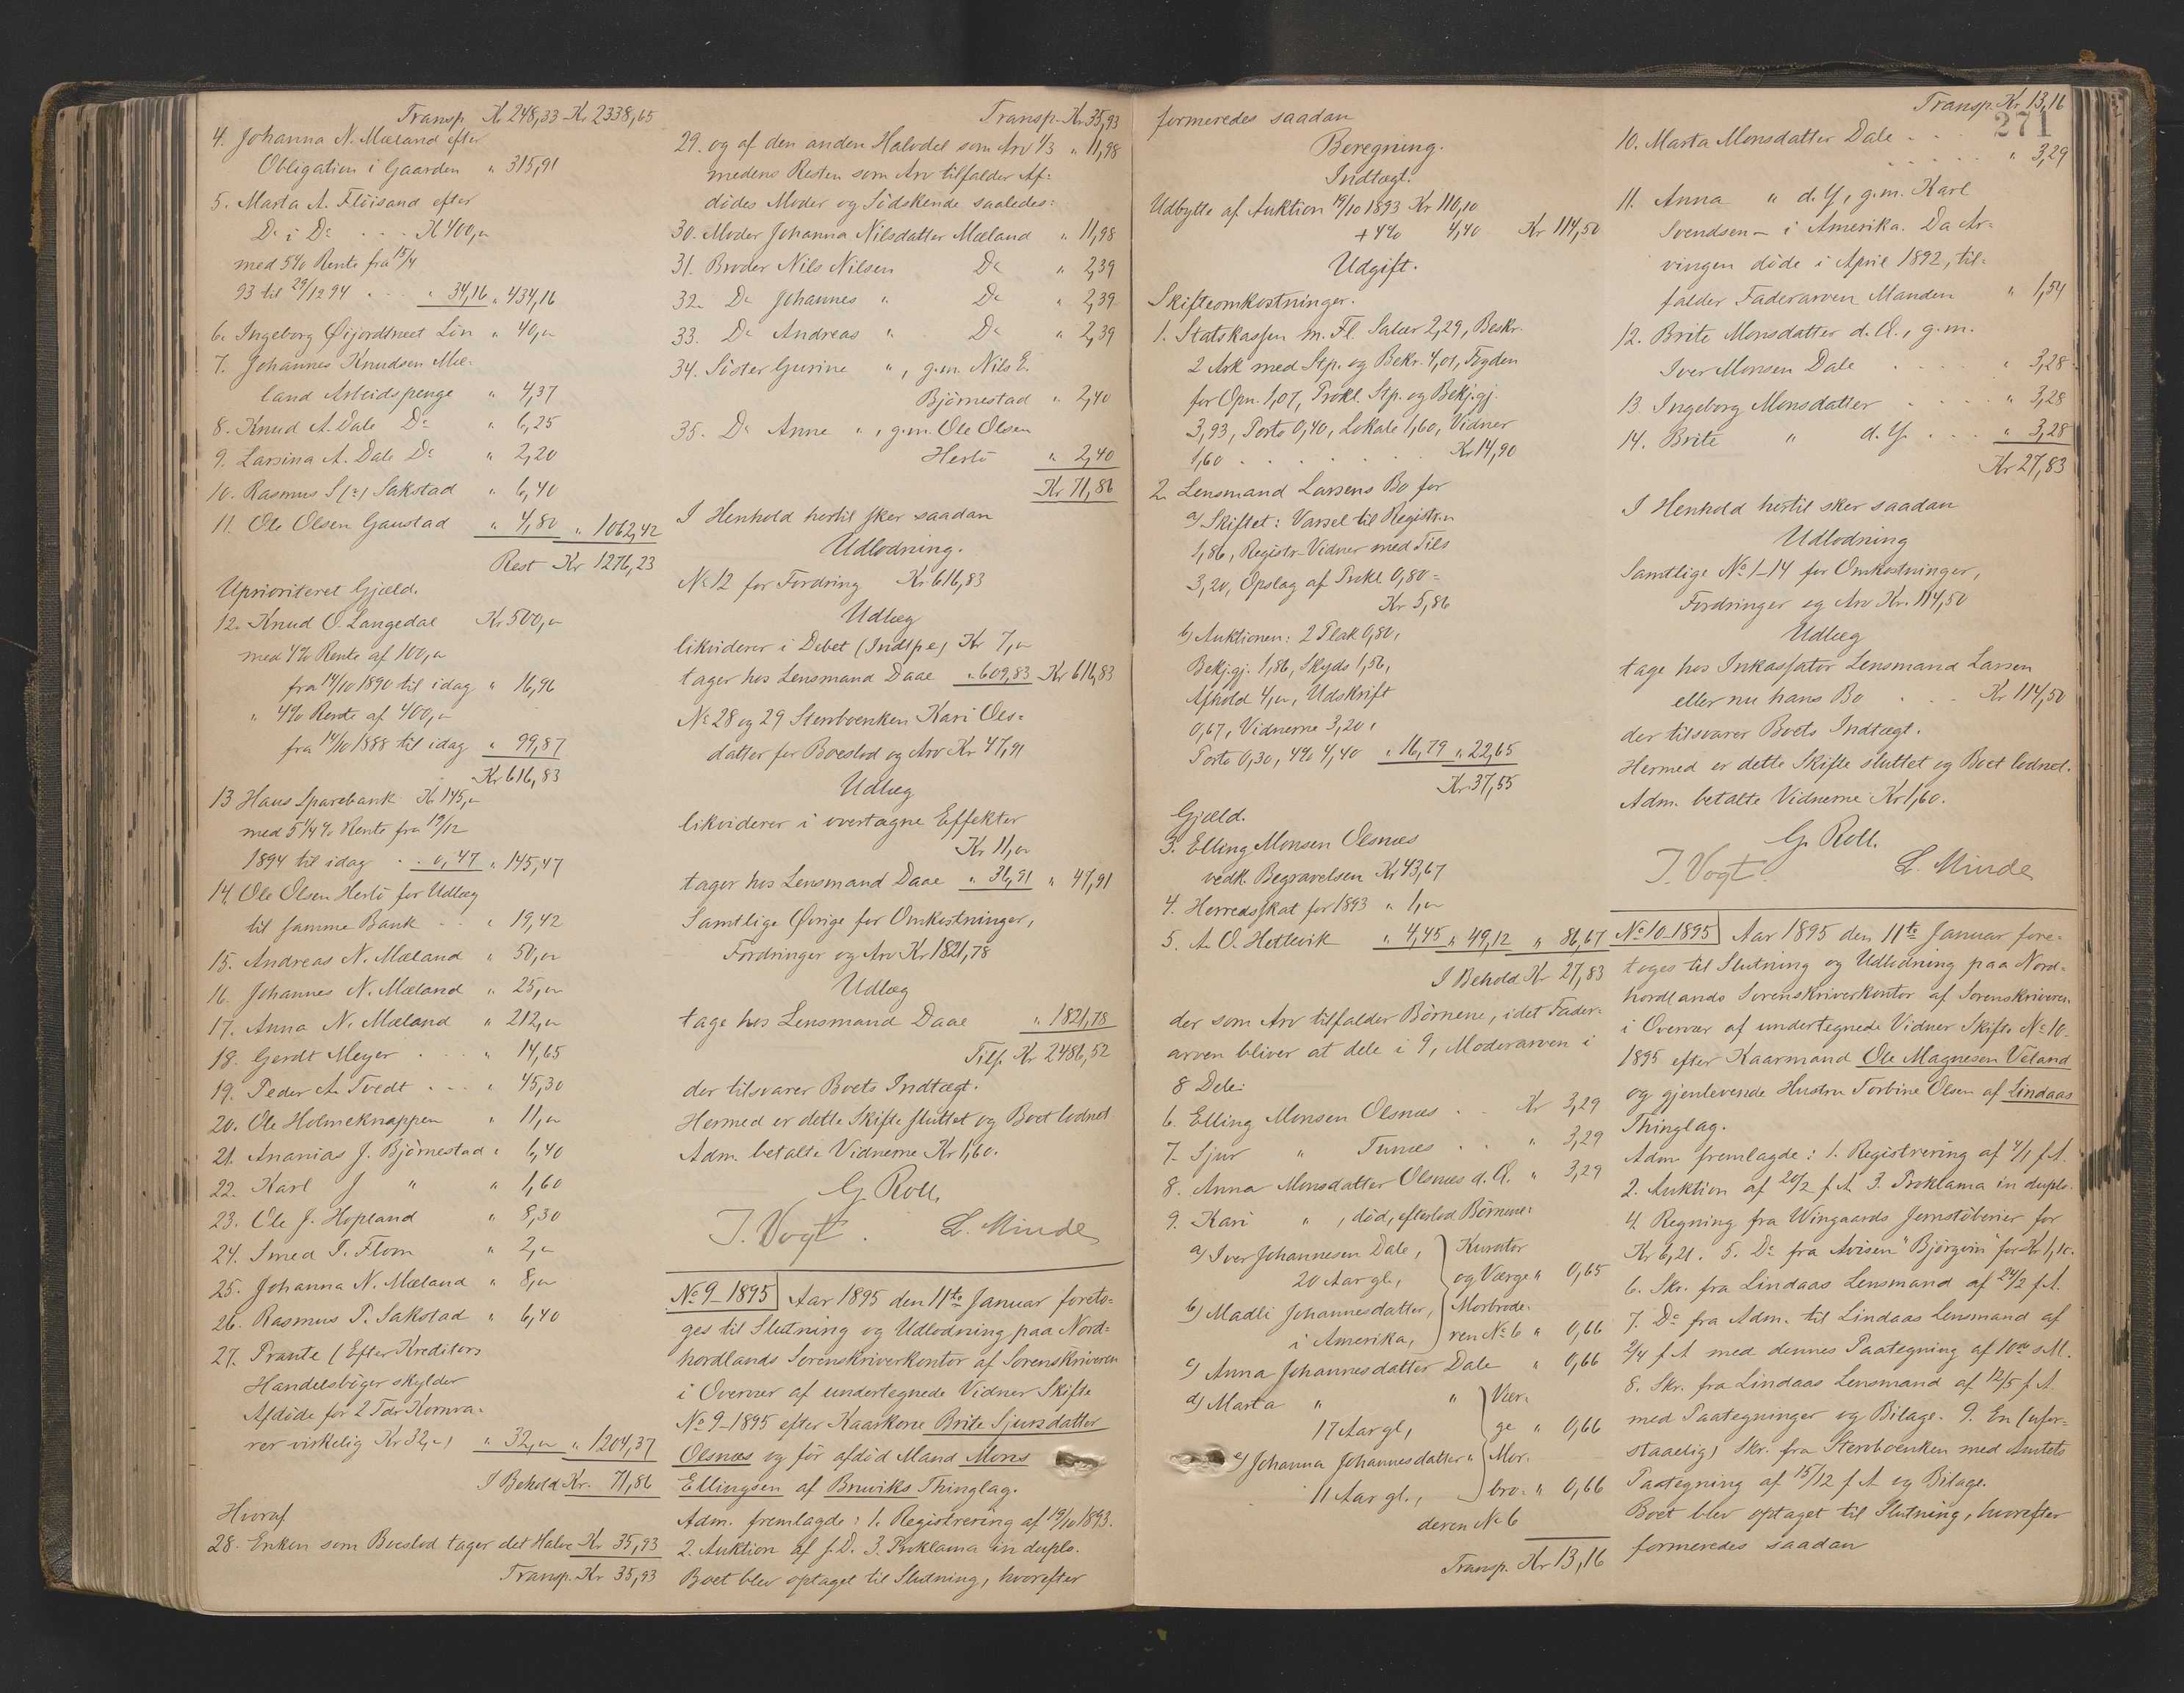 Transp. Kr 248,33 Kr 2338,65
4. Johanna N. Mæland efter
Obligation i Gaarden " 315,91
5. Marta A. Flöisand efter
Do i Do . . . Kr 400,"
med 5% Rente fra 15/4
93 til 29/12 94 . . . " 34,16 " 434,16
6. Ingeborg Lön " 40,"
7. Johannes Knudsen Mæ-
land Arbeidspenge " 4,37
8. Knud A. Dale Do " 6,25
9. Larsina A. Dale Do " 2,20
10. Rasmus S (?) Sakstad " 6,40
11. Ole Olsen Gaustad " 4,80 " 1062,42
Rest Kr 1276,23
Uprioriteret Gjæld.
12. Knud O. Langedal Kr 500,"
med 4% Rente af 100,"
fra 14/10 1890 til idag " 16,96
" 4% Rente af 400,"
fra 14/10 1888 til idag " 99,87
Kr 616,83
13 Haus Sparebank Kr 145,"
med 5 1/4 % Rente fra 19/12
1894 til idag . . 0,47 " 145,47
14. Ole Olsen Hertö for Udlæg
til samme Bank . . " 19,42
15. Andreas N. Mæland " 50,"
16. Johannes N. Mæland " 25,"
17. Anna N. Mæland " 212,"
18. Gerdt Meyer . . . " 14,65
19. Peder A. Tvedt . . . " 45,30
20. Ole Holmeknappen " 11,"
21. Ananias J. Björnestad " 6,40
22. Karl J " " 1,60
23. Ole J. Hopland " 8,30
24. Smed I. Flom " 2,"
25. Johanna N. Mæland " 8,"
26. Rasmus P. Sakstad " 6,40
27. Prante (Efter Kreditors
Handelsböger skylder
Afdöde for 2 Tdr Kornva-
rer virkelig Kr 32,") " 32," " 1204,37
I Behold Kr. 71,86
Hvoraf
28. Enken som Boeslod tager det Halve Kr. 35,93
Transp. Kr 35,93
Transp. Kr 35,93
29. og af den anden Halvdel som Arv 1/3 " 11,98
medens Resten som Arv tilfalder Af-
dödes Moder og Södskende saaledes:
30. Moder Johanna Nilsdatter Mæland " 11,98
31. Broder Nils Nilsen Do " 2,39
32. Do Johannes " Do " 2,39
33. Do Andreas " Do " 2,39
34. Söster Gurine ", g.m. Nils E.
Björnestad " 2,40
35. Do Anne ", g.m. Ole Olsen
Hertö " 2,40
Kr 71,86
I Henhold hertil sker saadan
Udlodning.
No 12 for Fordring Kr 616,83
Udlæg
likviderer i Debet (Indtpe) Kr 7,"
tager hos Lensmand Daae " 609,83 Kr 616,83
No 28 og 29 Stervboenken Kari Ols-
datter for Boeslod og Arv Kr 47,91
Udlæg
likviderer i overtagne Effekter
Kr 11,"
tager hos Lensmand Daae " 36,91 " 47,91
Samtlige Övrige for Omkostninger,
Fordringer og Arv Kr 1821,78
Udlæg
tage hos Lensmand Daae " 1821,78
Tils. Kr 2486,52
der tilsvarer Boets Indtægt.
Hermed er dette Skifte sluttet og Boet lodnet
Adm. betalte Vidnerne Kr 1,60.
G. Roll.
J. Vogt. L. Minde
No 9-1895 Aar 1895 den 11te Januar foreto-
ges til Slutning og Udlodning paa Nord-
hordlands Sorenskriverkontor af Sorenskriveren
i Overvær af undertegnede Vidner Skifte
No 9-1895 efter Kaarkone Brite Sjursdatter
Olsnæs og för afdöd Mand Mons
Ellingsen af Bruviks Thinglag.
Adm. fremlagde: 1. Registrering af 19/10 1893.
2. Auktion af s. D. 3. Proklama in duplo.
Boet blev optaget til Slutning, hvorefter
formeredes saadan
Beregning.
Indtægt.
Udbytte af Auktion 19/10 1893 Kr 110,10
+ 4% 4,40 Kr 114,50
Udgift.
Skifteomkostninger.
1. Statskassen m. Fl. Salær 2,29, Beskr.
2 Ark med Stp. og Bekr. 4,01, Fogden
for Opn. 1,07, Prokl. Stp. og Bekj.gj.
3,93, Porto 0,40, Lokale 1,60, Vidner
1,60 . . . . . . Kr 14,90
2. Lensmand Larsens Bo for
a) Skiftet: Varsel til Registr.n
1,86, Registr.-Vidner med Tils
3,20, Opslag af Prokl. 0,80 =
Kr 5,86
b) Auktionen: 2 Plak 0,80,
Bekj.gj. 1,86, Skyds 1,56,
Afhold 4,", Udskrift
0,67, Vidnerne 3,20,
Porto 0,30, 4% 4,40 " 16,79 " 22,65
Kr 37,55
Gjæld.
3. Elling Monsen Olsnæs
vedk. Begravelsen Kr 43,67
4. Herredsskat for 1893 " 1,"
5. A. O. Hettevik " 4,45 " 49,12 " 86,67
I Behold Kr 27,83
der som Arv tilfalder Börnene, idet Fader-
arven bliver at dele i 9, Moderarven i
8 Dele:
6. Elling Monsen Olsnæs . . Kr 3,29
7. Sjur " Tunæs . . " 3,29
8. Anna Monsdatter Olsnæs d. Æ. " 3,29
9. Kari " , död, efterlod Börnene:
a) Iver Johannesen Dale, } Kurator
20 Aar gl., og Værge " 0,65
b) Madli Johannesdatter, } Morbrode-
i Amerika, ren No 6 " 0,66
c) Anna Johannesdatter Dale " 0,66
d) Marta " " } Vær-
17 Aar gl., ge " 0,66
e) Johanna Johannesdatter " } Mor-
11 Aar gl., bro- " 0,66
deren No 6
Transp. Kr 13,16
Transp. Kr 13,16
271
10. Marta Monsdatter Dale . .
. . . . . " 3,29
11. Anna " d. Y., g.m. Karl
Svendsen - i Amerika. Da Ar-
vingen döde i April 1892, til-
falder Faderarven Manden " 1,54
12. Brite Monsdatter d. Æ., g.m.
Iver Monsen Dale . . . . " 3,28
13. Ingeborg Monsdatter . . . . " 3,28
14. Brite " d. Y. . . . " 3,28
Kr 27,83
I Henhold hertil sker saadan
Udlodning
Samtlige No 1-14 for Omkostninger,
Fordringer og Arv Kr. 114,50
Udlæg
tage hos Inkassator Lensmand Larsen
eller nu hans Bo . . . Kr 114,50
der tilsvarer Boets Indtægt.
Hermed er dette Skifte sluttet og Boet lodnet.
Adm. betalte Vidnerne Kr 1,60.
G. Roll.
J. Vogt. L. Minde
No 10-1895 Aar 1895 den 11te Januar fore-
toges til Slutning og Udlodning paa Nord-
hordlands Sorenskriverkontor af Sorenskriveren
i Overvær af undertegnede Vidner Skifte No 10-
1895 efter Kaarmand Ole Magnesen Veland
og gjenlevende Hustru Torbine Olsen af Lindaas
Thinglag.
Adm. fremlagde: 1. Registrering af 4/1 f. A.
2. Auktion af 20/2 f. A. 3. Proklama in duplo.
4. Regning fra Wingaards Jernstöberier for
Kr 6,21. 5. Do fra Avisen "Björgvin" for Kr 1,10.
6. Skr. fra Lindaas Lensmand af 24/2 f. A.
7. Do fra Adm. til Lindaas Lensmand af
2/4 f. A. med dennes Paategning af 10de s. M.
8. Skr. fra Lindaas Lensmand af 12/5 f. A.
med Paategninger og Bilage. 9. En (ufor-
staaelig) Skr. fra Stervboenken med Amtets
Paategning af 15/12 f. A. og Bilage.
Boet blev optaget til Slutning, hvorefter
formeredes saadan